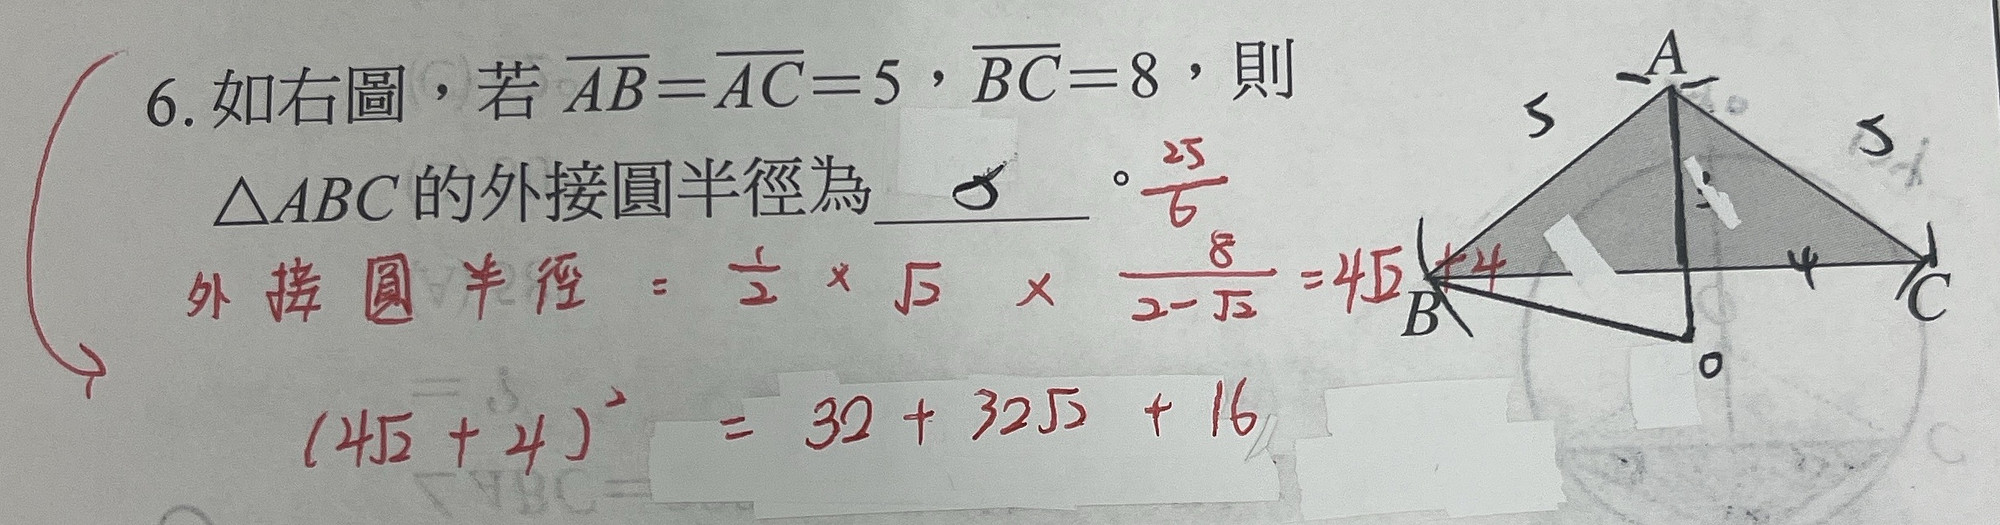 6. 如右圖，若 AB=AC=5，BC=8，則
△ABC的外接圓半徑為 5 。 25/6
外接圓半徑 = 1/2 × √2 × 8/(2-√2) = 4√2 + 4
(4√2 + 4)² = 32 + 32√2 + 16
A
5
5
3
4
B
C
O